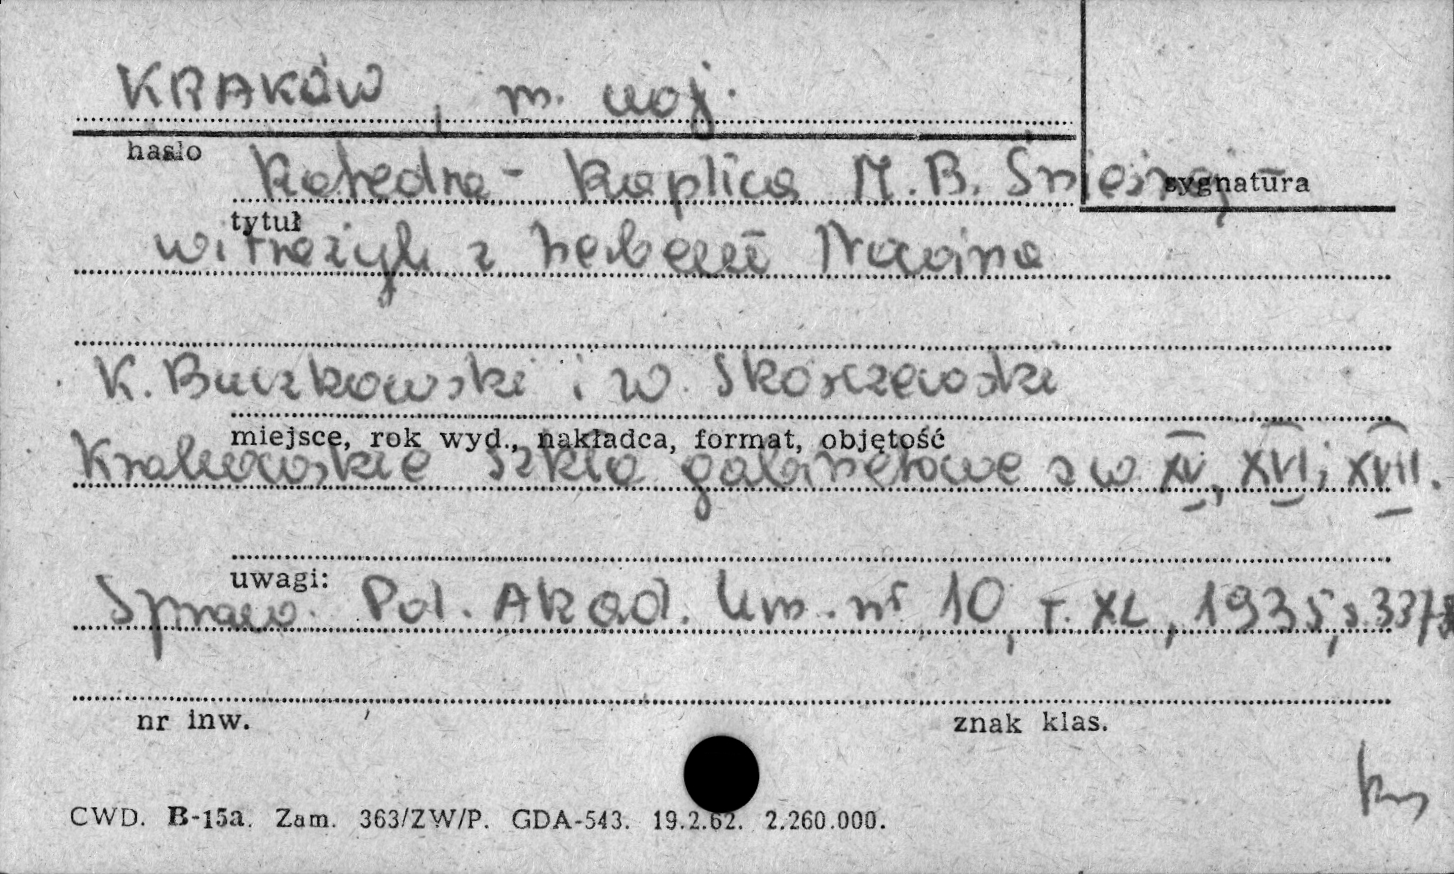 KRAKÓW, m. woj.
hasło
Katedra - Kaplica M.B. Śnieżnej
sygnatura
tytuł
witrażyk z herbem Nowina
K. Buczkowski i W. Skórczewski
miejsce, rok wyd., nakładca, format, objętość
Krakowskie szkła gabinetowe z w. XV, XVI i XVII.
uwagi:
Spraw. Pol. Akad. Um. nr 10, T. XL, 1935, s. 337
nr inw.
znak klas.
CWD. B-15a. Zam. 363/ZW/P. GDA-543. 19.2.62. 2.260.000.